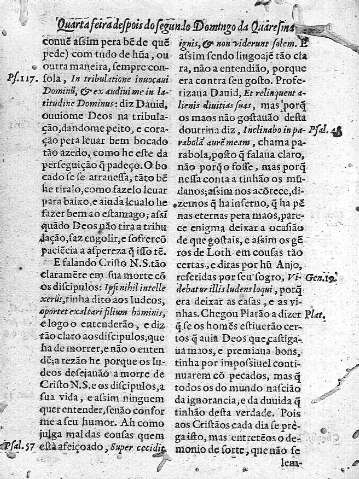 Quarta feira despois do segundo Domingo da Quaresma
conuē assim pera bē de quē
pede) com tudo de hūa, ou
outra maneira, sempre con-
Psf.117. sola, In tribulatione inuocaui
Dominū, & exaudiui me in la-
titudine Dominus: diz Dauid,
ouuiome Deos na tribula-
ção, dandome peito, e cora-
ção pera leuar bem bocado
tão azedo, como he este da
perseguição q̃ padeço. O bo-
cado se se arranessa, tāto bē
he tiralo, como fazelo leuar
para baixo, e ainda leualo he
fazer bem ao estamago; assi
quādo Deos não tira a tribu
lação, faz engolir, e sofrer cō
paciēcia a aspereza q̃ isso tē.
E falando Cristo N.S. tão
claramēte em sua morte cō
os discipulos: Ipsi nihil intelle
xerūt, tinha dito aos Iudeos,
oportet exaltari filium hominis,
e logo o entenderão, e diz
tão claro aos discipulos, que
ha de morrer, e não o enten-
dē; a rezão he porque os Iu-
deos desejauão a morte de
Cristo N.S. e os discipulos, a
sua vida, e assim ninguem
quer entender, senão confor
me a seu humor. Ah como
julga mal das cousas quem
Psal.57 está afeiçoado, Super cecidit
ignis, & non viderunt solem. E
assim sendo lingoajē tão cla
ra, não a entendião, porque
era contra seu gosto. Profe-
tizaua Dauid, Et relinquent a-
lienis diuitias suas, mas porq̃
os maos não gostauão desta
doutrina diz, Inclinabo in pa- Psal.48
rabolā aurē meam, chama pa-
rabola, posto q̃ falaua claro,
não porq̃ o fosse, mas porq̃
nessa conta a tinhão os mū-
danos; assim nos acōtece, di-
zeinos q̃ ha inferno, q̃ ha pe
nas eternas pera maos, pare-
ce enigma deixar a ocasião
de que gostais, e assim os gē-
ros de Loth em cousas tão
certas, e ditas por hū Anjo,
refetidas por seu sogro, Vi- Gen.19.
debatur illis ludens loqui, porq̃
era deixar as casas, e as vi-
nhas. Chegou Platão a dizer Plat.
q̃ se os homēs estiuerão cer-
tos q̃ auia Deos que castiga-
ua maos, e premiaua bons,
tinha por impossiuel conti-
nuarem cō pecados, mas q̃
todos os do mundo nascião
da ignorancia, e da duuida q̃
tinhão desta verdade. Pois
aos Cristãos cada dia se pre-
ga isto, mas entretēos o de-
monio de sorte, que não se
lem-